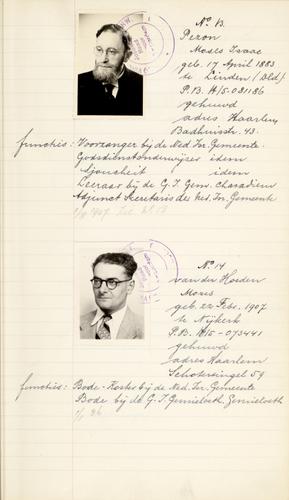 No. 13.
Peron
Mozes Isaac
geb. 17 April 1883
te Linden (Dld.)
P.B. H/5-031186
gehuwd
adres Haarlem
Badhuisstr. 43.
functies: Voorzanger bij de Ned. Isr. Gemeente.
Godsdienstonderwijzer idem
Sjoucheit idem
Leeraar bij de G. I. Gem. chasadiem
Adjunct Secretaris der Ned. Isr. Gemeente
No. 14
van der Hoeden
Mozes
geb. 22 Febr. 1907
te Nijkerk
P.B. H/15-073441
gehuwd
adres Haarlem
Schotersingel 59
functies: Bode-Koster bij de Ned. Isr. Gemeente
Bode bij de G. I.